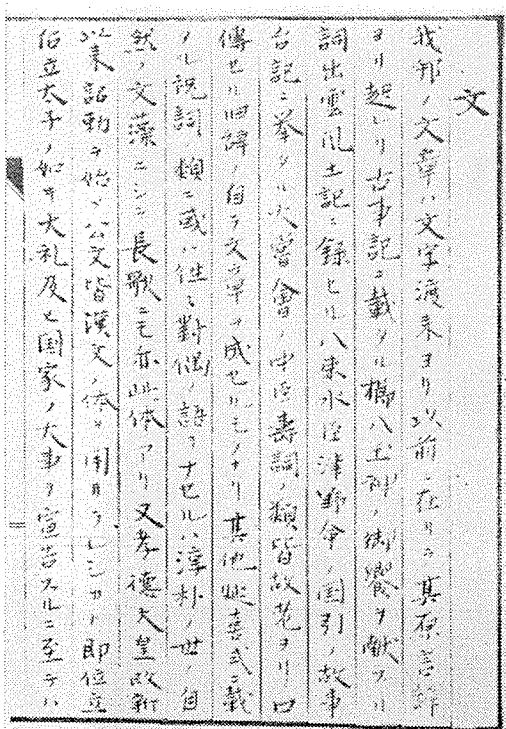 文
我邦ノ文章ハ文字渡来ヨリ以前ニ在リテ其原善辞
ヨリ起レリ古事記ニ載タル櫛八玉神ノ御饗ヲ献ツル
詞出雲風土記ニ録セル八束水臣津野命ノ国引ノ故事
台記ニ挙タル大嘗會ノ中臣壽詞ノ類皆故老ヨリ口
傳セル旧辞ノ自ラ文章ヲ成セルモノナリ其他延喜式ニ載
タル祝詞ノ類ニ或ハ往々對偶ノ語ヲナセルハ淳朴ノ世ノ自
然ノ文藻ニシテ長歌ニモ亦此体アリ又孝徳天皇改新
以来詔勅ヲ始メ公文皆漢文ノ体ヲ用ヰラレシカトモ即位立
后立太子ノ如キ大礼及ヒ国家ノ大事ヲ宣告スルニ至テハ